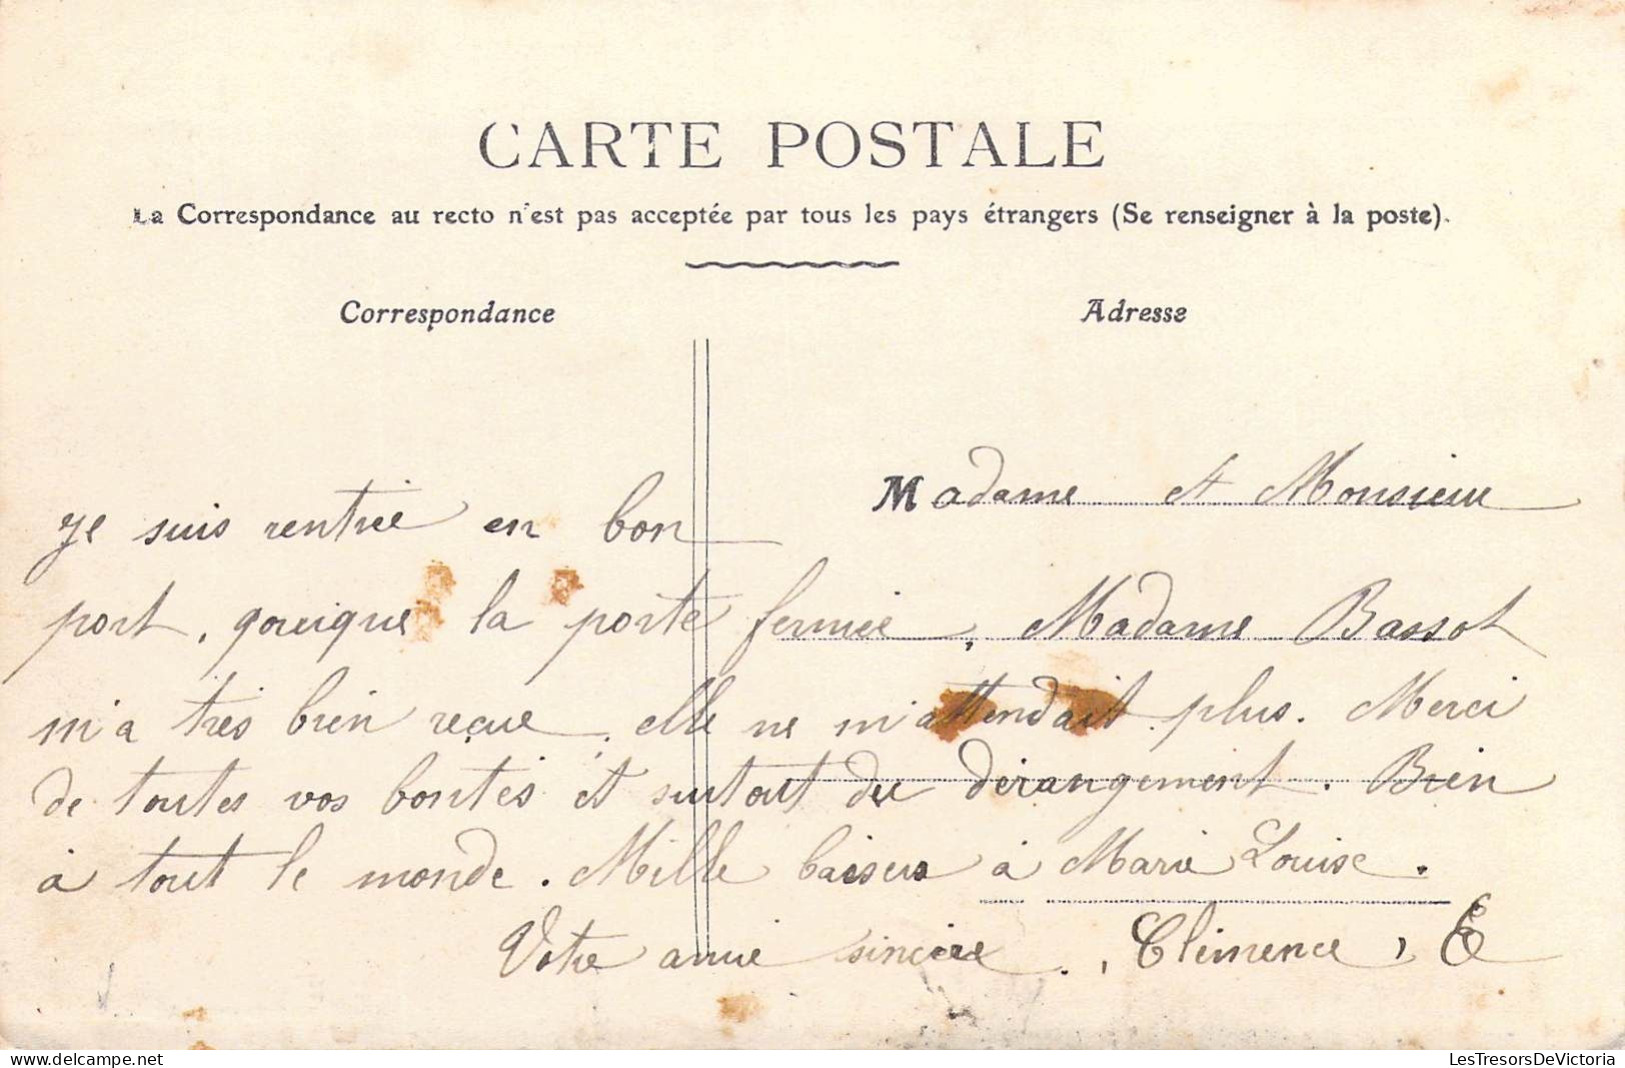 CARTE POSTALE
La Correspondance au recto n'est pas acceptée par tous les pays étrangers (Se renseigner à la poste).
Correspondance
Adresse
Madame et Monsieur
Je suis rentrée en bon
port, quoique la porte fermée, Madame Bassot
m'a très bien reçue, elle ne m'attendait plus. Merci
de toutes vos bontés et surtout du dérangement. Bien
à tout le monde. Mille baisers à Marie Louise.
Votre amie sincère, Clémence, E
LesTresorsDeVictoria